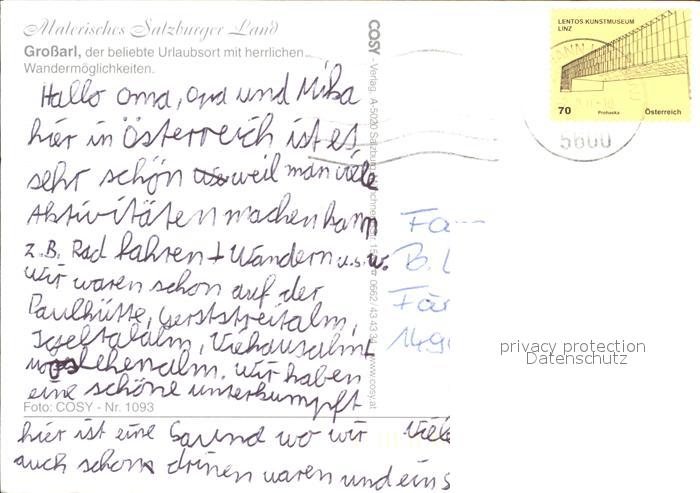 Malerisches Salzburger Land
Großarl, der beliebte Urlaubsort mit herrlichen
Wandermöglichkeiten.
Hallo Oma, Opa und Mika
hier in Österreich ist es
sehr schön weil man viele
Aktivitäten machen kann
z.B. Rad fahren + Wandern u.s.w.
Wir waren schon auf der
Paulhütte, Gerststreitalm,
Igeltalalm, Viehausalm +
lehenalm. Wir haben
eine schöne unterkumpft
Foto: COSY - Nr. 1093
hier ist eine Saund wo wir
auch schon drinen waren und ein s
Viele
COSY - Verlag, A-5020 Salzburg, 0662 / 43 43 www.cosy.at
LENTOS KUNSTMUSEUM
LINZ
70 Prohaska Österreich
5600
Fa
B. L
Fär
149
privacy protection
Datenschutz